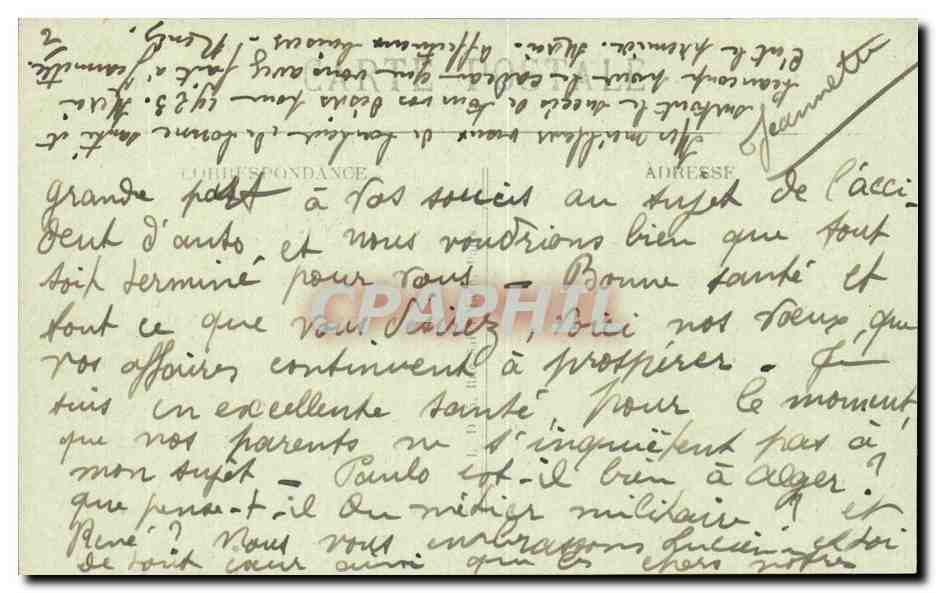 CARTE POSTALE
CORRESPONDANCE
ADRESSE
grande part à vos soucis au sujet de l'acci-
dent d'auto et nous voudrions bien que tout
soit terminé pour vous - Bonne santé et
tout ce que vous désirez, voici nos vœux, que
vos affaires continuent à prospérer - Je
suis en excellente santé, pour le moment,
que nos parents ne s'inquiètent pas à
mon sujet - Paulo est-il bien à Alger?
que pense-t-il du métier militaire? et
René? Nous vous embrassons Lucien et toi
de tout cœur ainsi que les chers nôtres
Jeannette
Mes meilleurs vœux de bonheur, de bonne santé et
surtout le succès de tous vos désirs pour 1923. Merci
beaucoup pour le cadeau que vous avez fait à Jeannette.
C'est le premier. Affectueux baisers - René
2
CPAPHIL